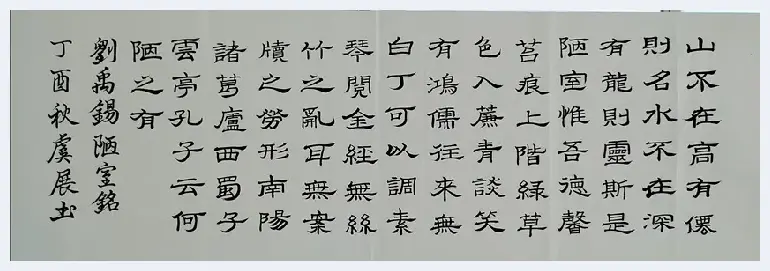 山不在高有僊
則名水不在深
有龍則靈斯是
陋室惟吾德馨
苔痕上階綠草
色入簾青談笑
有鴻儒往來無
白丁可以調素
琴閱金經無絲
竹之亂耳無案
牘之勞形南陽
諸葛廬西蜀子
雲亭孔子云何
陋之有
劉禹錫陋室銘
丁酉秋虞展